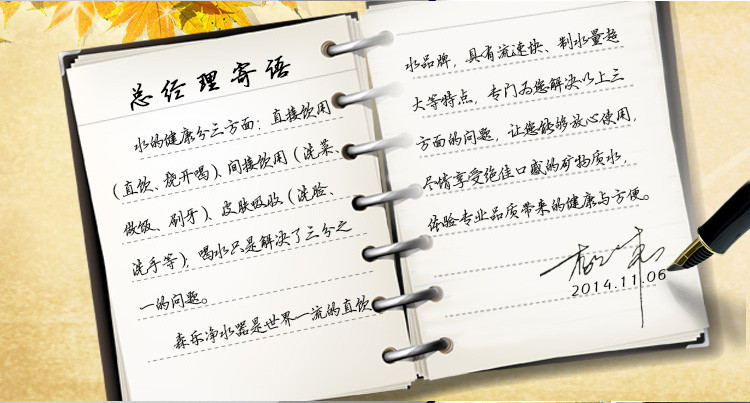 总经理寄语
水的健康分三方面：直接饮用
（直饮、烧开喝）、间接饮用（洗菜、
做饭、刷牙）、皮肤吸收（洗脸、
洗手等），喝水只是解决了三分之
一的问题。
森乐净水器是世界一流的直饮
水品牌，具有流速快、制水量超
大等特点，专门为您解决以上三
方面的问题，让您能够放心使用，
尽情享受绝佳口感的矿物质水，
体验专业品质带来的健康与方便。
2014.11.06